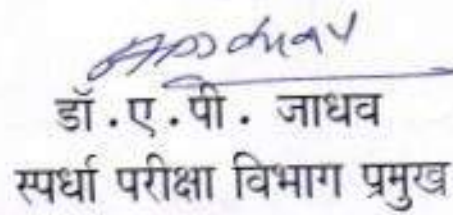 डॉ.ए.पी. जाधव
स्पर्धा परीक्षा विभाग प्रमुख